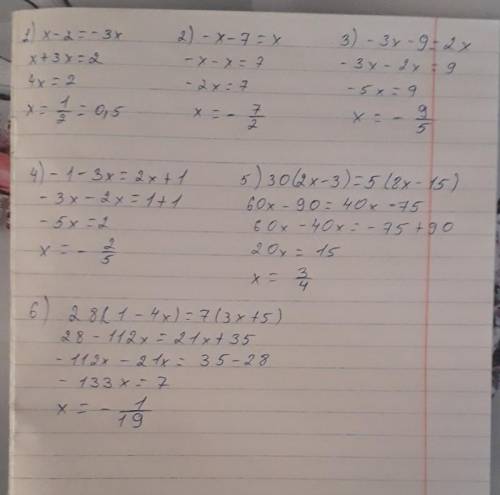 1) x-2=-3x
x+3x=2
4x=2
x=1/2=0,5
2) -x-7=x
-x-x=7
-2x=7
x=-7/2
3) -3x-9=2x
-3x-2x=9
-5x=9
x=-9/5
4) -1-3x=2x+1
-3x-2x=1+1
-5x=2
x=-2/5
5) 30(2x-3)=5(8x-15)
60x-90=40x-75
60x-40x=-75+90
20x=15
x=3/4
6) 28(1-4x)=7(3x+5)
28-112x=21x+35
-112x-21x=35-28
-133x=7
x=-1/19